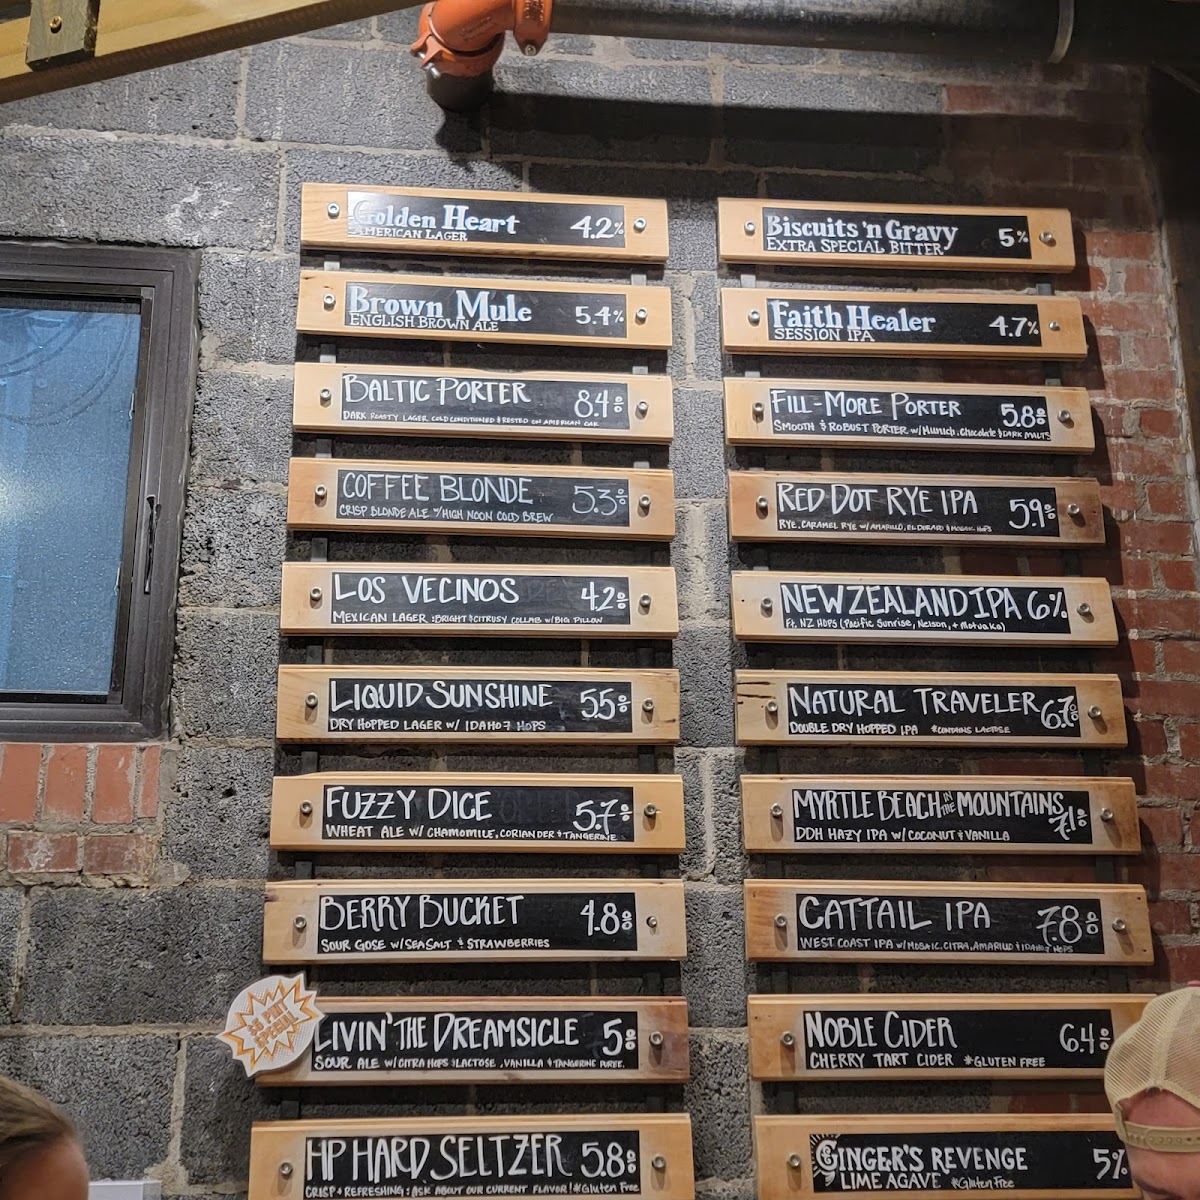 Golden Heart 4.2%
AMERICAN LAGER
Brown Mule 5.4%
ENGLISH BROWN ALE
BALTIC PORTER 8.4%
DARK ROASTY LAGER COLD CONDITIONED & RESTED ON AMERICAN OAK
COFFEE BLONDE 5.3%
CRISP BLONDE ALE W/HIGH NOON COLD BREW
LOS VECINOS 4.2%
MEXICAN LAGER :BRIGHT & CITRUSY COLLAB W/ BIG PILLOW
LIQUID SUNSHINE 5.5%
DRY HOPPED LAGER W/ IDAHO 7 HOPS
FUZZY DICE 5.7%
WHEAT ALE W/ CHAMOMILE, CORIANDER & TANGERINE
BERRY BUCKET 4.8%
SOUR GOSE W/ SEA SALT & STRAWBERRIES
$3 PINT
SPECIAL!
LIVIN' THE DREAMSICLE 5%
SOUR ALE W/ CITRA HOPS & LACTOSE, VANILLA & TANGERINE PUREE.
HP HARD SELTZER 5.8%
CRISP & REFRESHING : ASK ABOUT OUR CURRENT FLAVOR! *Gluten Free
Biscuits 'n Gravy 5%
EXTRA SPECIAL BITTER
Faith Healer 4.7%
SESSION IPA
FILL-MORE PORTER 5.8%
SMOOTH & ROBUST PORTER W/ Munich, Chocolate & DARK MALTS
RED DOT RYE IPA 5.9%
RYE, CARAMEL RYE W/ AMARILLO, EL DORADO & MOSAIC HOPS
NEW ZEALAND IPA 6%
Ft. NZ HOPS (Pacific Sunrise, Nelson, + Motueka)
NATURAL TRAVELER 6.7%
DOUBLE DRY HOPPED IPA *CONTAINS LACTOSE
MYRTLE BEACH IN THE MOUNTAINS 7.1%
DDH HAZY IPA W/ COCONUT & VANILLA
CATTAIL IPA 7.8%
WEST COAST IPA W/ MOSAIC, CITRA, AMARILLO & IDAHO 7 HOPS
NOBLE CIDER 6.4%
CHERRY TART CIDER *GLUTEN FREE
GINGER'S REVENGE 5%
LIME AGAVE *Gluten Free